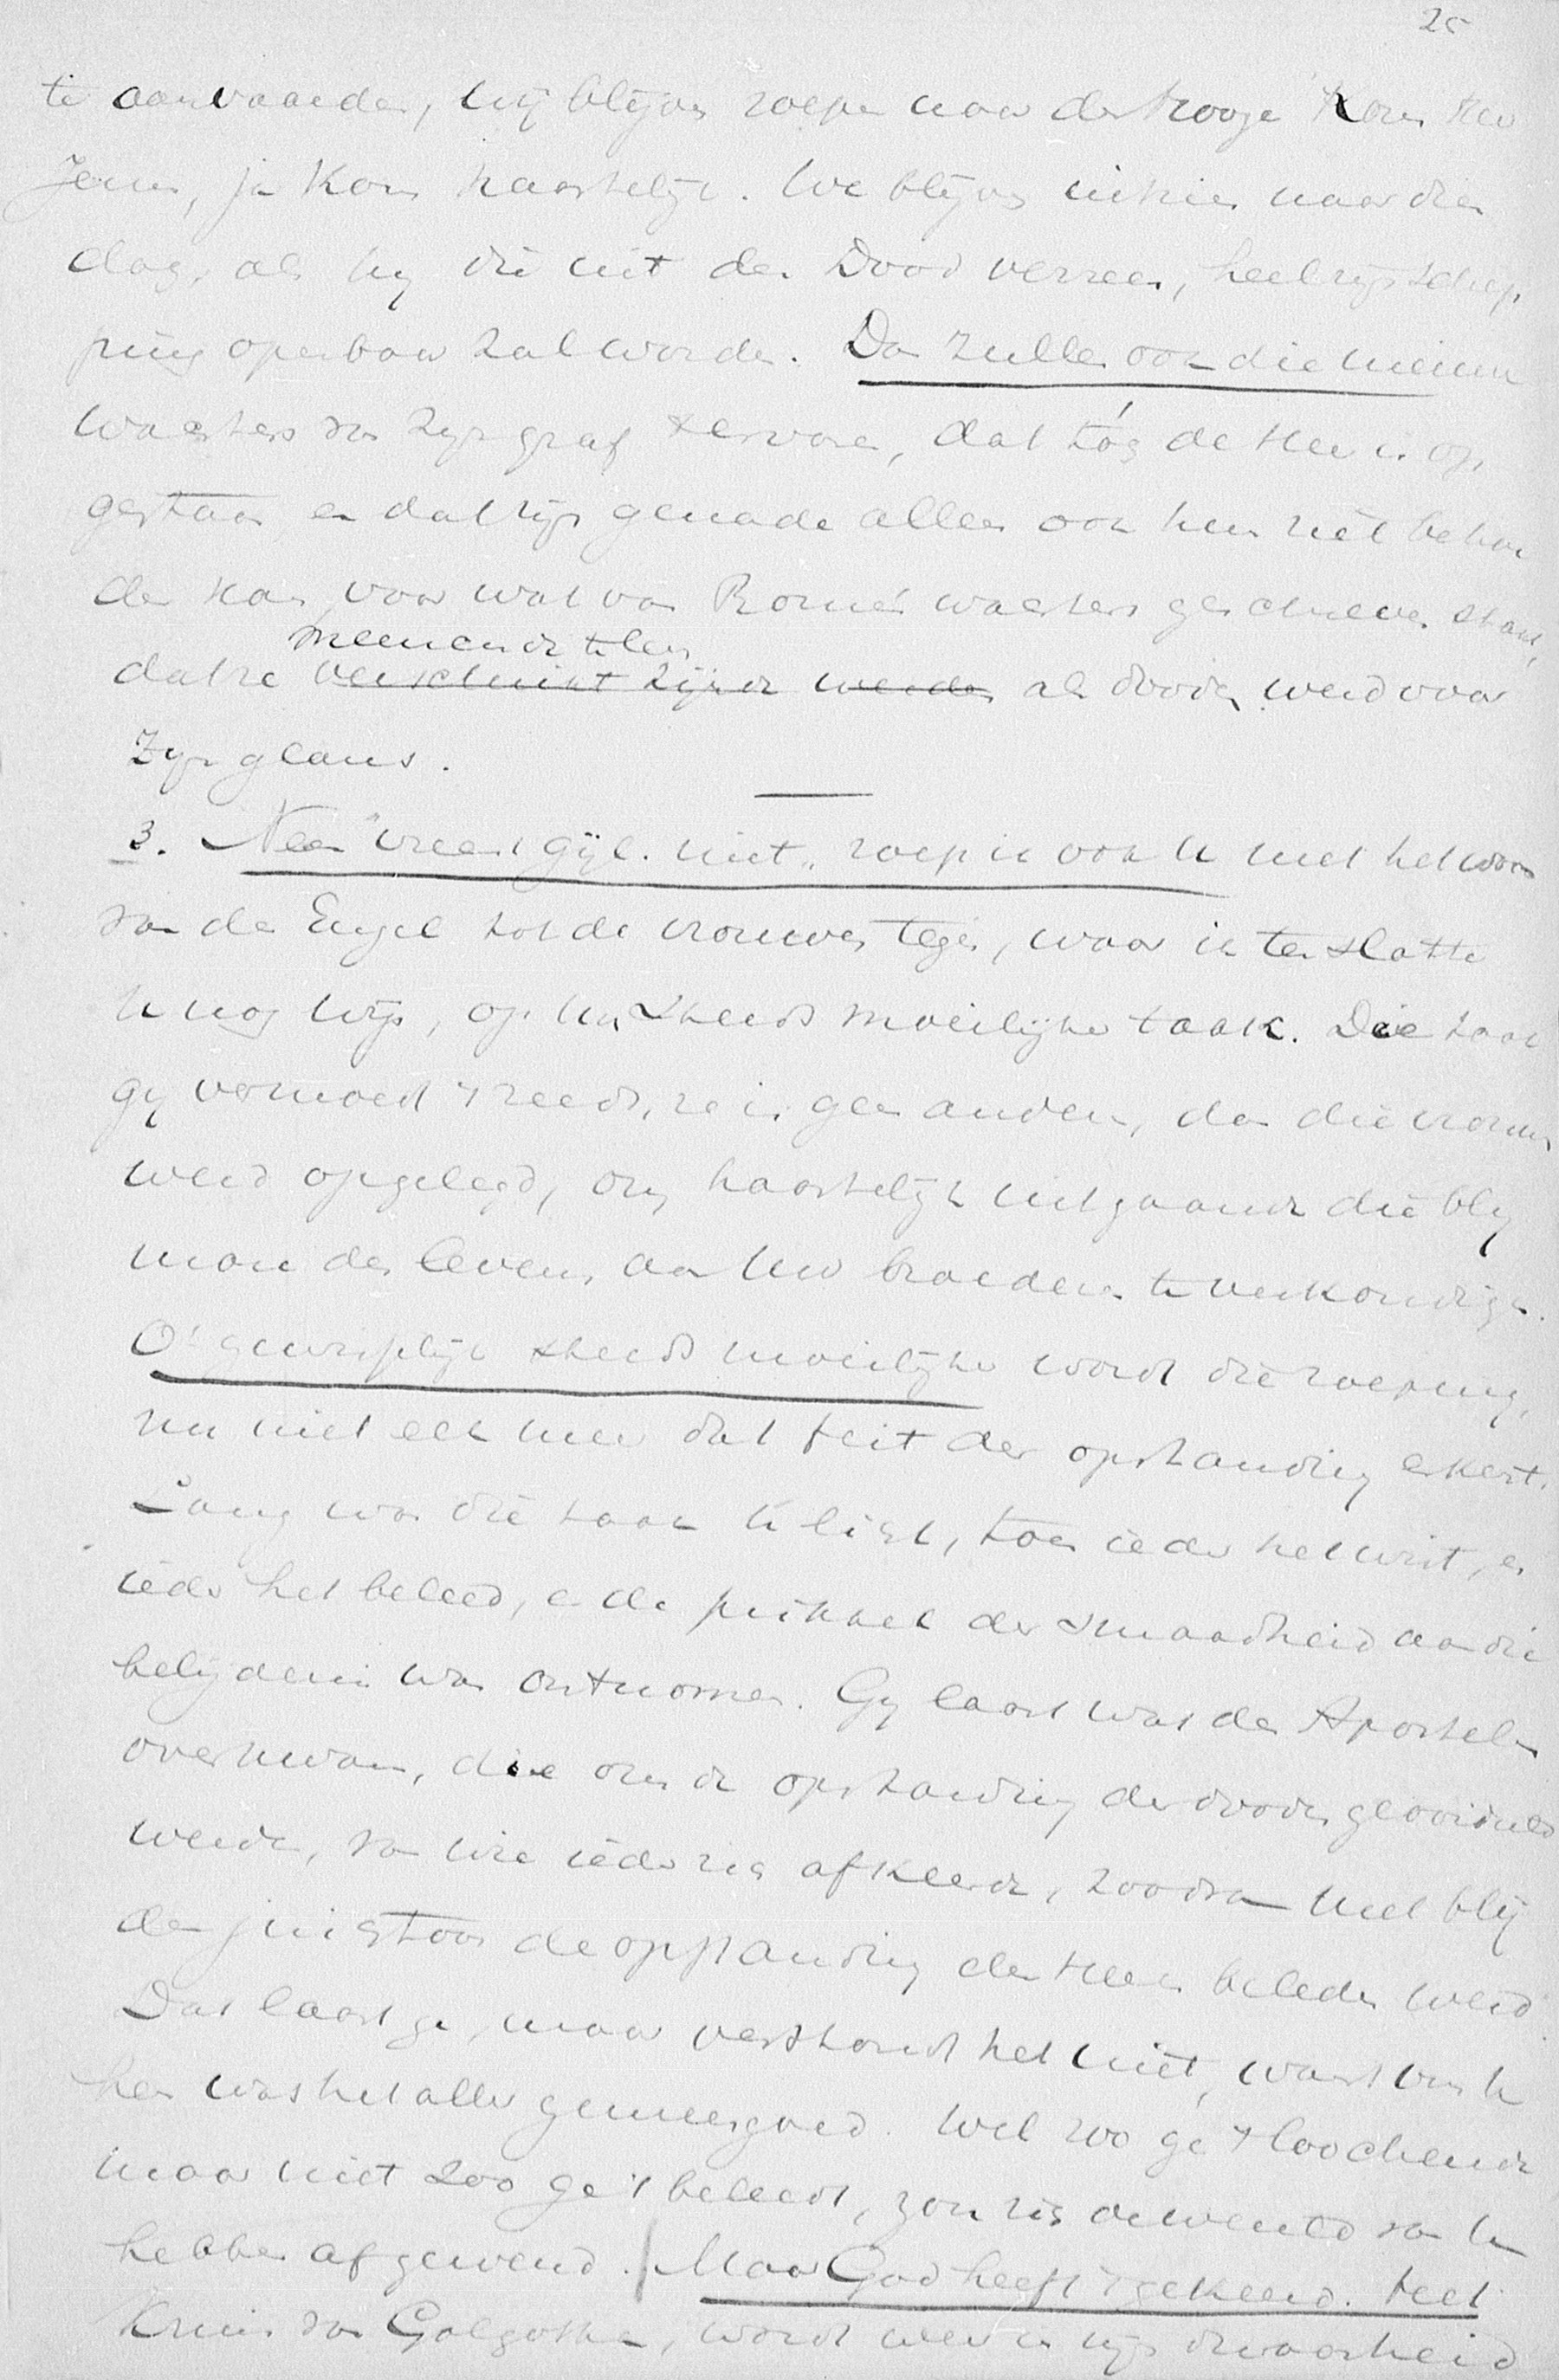 25
te aanvaarden, wij blijven roepen naar den hooge Kom Heer
Jezus, ja kom haastelijk. We blijven uitzien naar dien
dag, als hij die uit den Dood verrees, heel zijn schep
ping openbaar zal worden. Dan zullen ook die nieuwe
wachters van zijn graf ervaren, dat tóch de Heer is op
gestaan en dat zijn genade alleen ook hen niet behou
den kan, voor wat van Rome's wachters geschreven staat,
meenende te leven
dat ze verschrikt zijnde werden als dooden werd voor
Zijn glans.
3. Neen "vreest gijl. niet" roep ik ook u met het woord
van den Engel tot de vrouwen tegen, waar ik ten slotte
u nog wijs, op uw steeds moeilijker taak. Die taak
gij vermoedt 't reeds, ze is geen andere, dan die vrouwen
werd opgelegd, om haastelijk uitgaande die blij
mare des levens aan uw broederen te verkondigen.
O! steeds moeilijker wordt die roeping,
nu niet elk meer dat feit der opstanding erkent.
Lang was die taak te licht, toen ieder het wist, en
ieder het beleed, en de prikkel der smaadheid aan die
belijdenis was ontnomen. Gij laast wat den Apostelen
overkwam, die om de opstanding der dooden geoordeeld
werden, van wie ieder zich afkeerde, zoodra met blij
den juichtoon de opstanding des Heeren beleden werd.
Dat laast ge, maar verstondt het niet, want om u
heen was het aller gemeengoed. Wel zoo ge 't loochende
maar niet zoo ge 't beleedt, zou zich de wereld van u
hebben afgewend. / Maar God heeft 't gekeerd. Het
Kruis van Golgotha, wordt weer in zijn dwaasheid